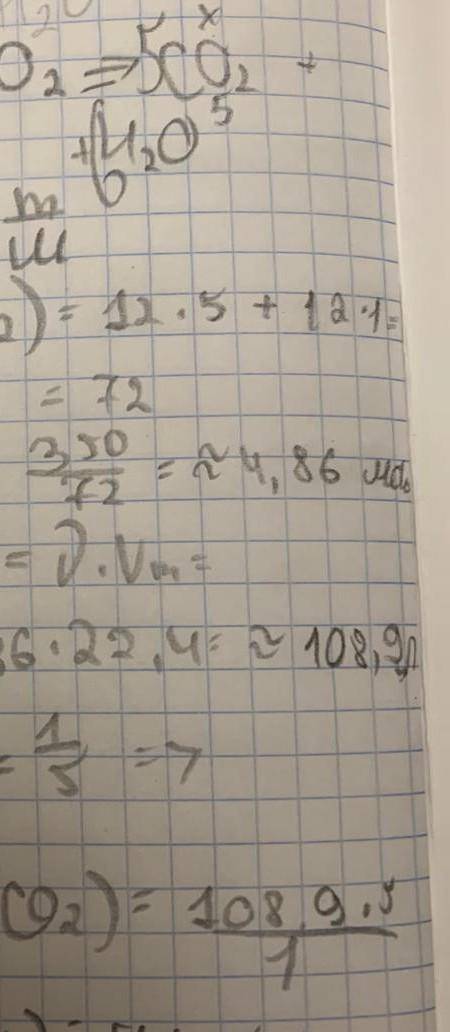 x
O₂ ⇒ 5CO₂ +
5
+6H₂O
m
M
2) = 12 · 5 + 12 · 1 =
= 72
350
72
= ≈ 4,86 моль
= ν · Vm =
86 · 22,4 = ≈ 108,9л
= 1
5
=>
CO₂) = 108,9 · 5
1